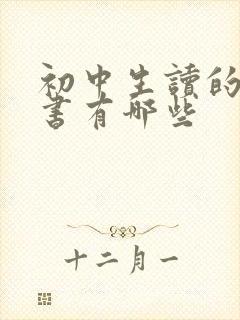 初中生讀的
書有哪些
十二月一